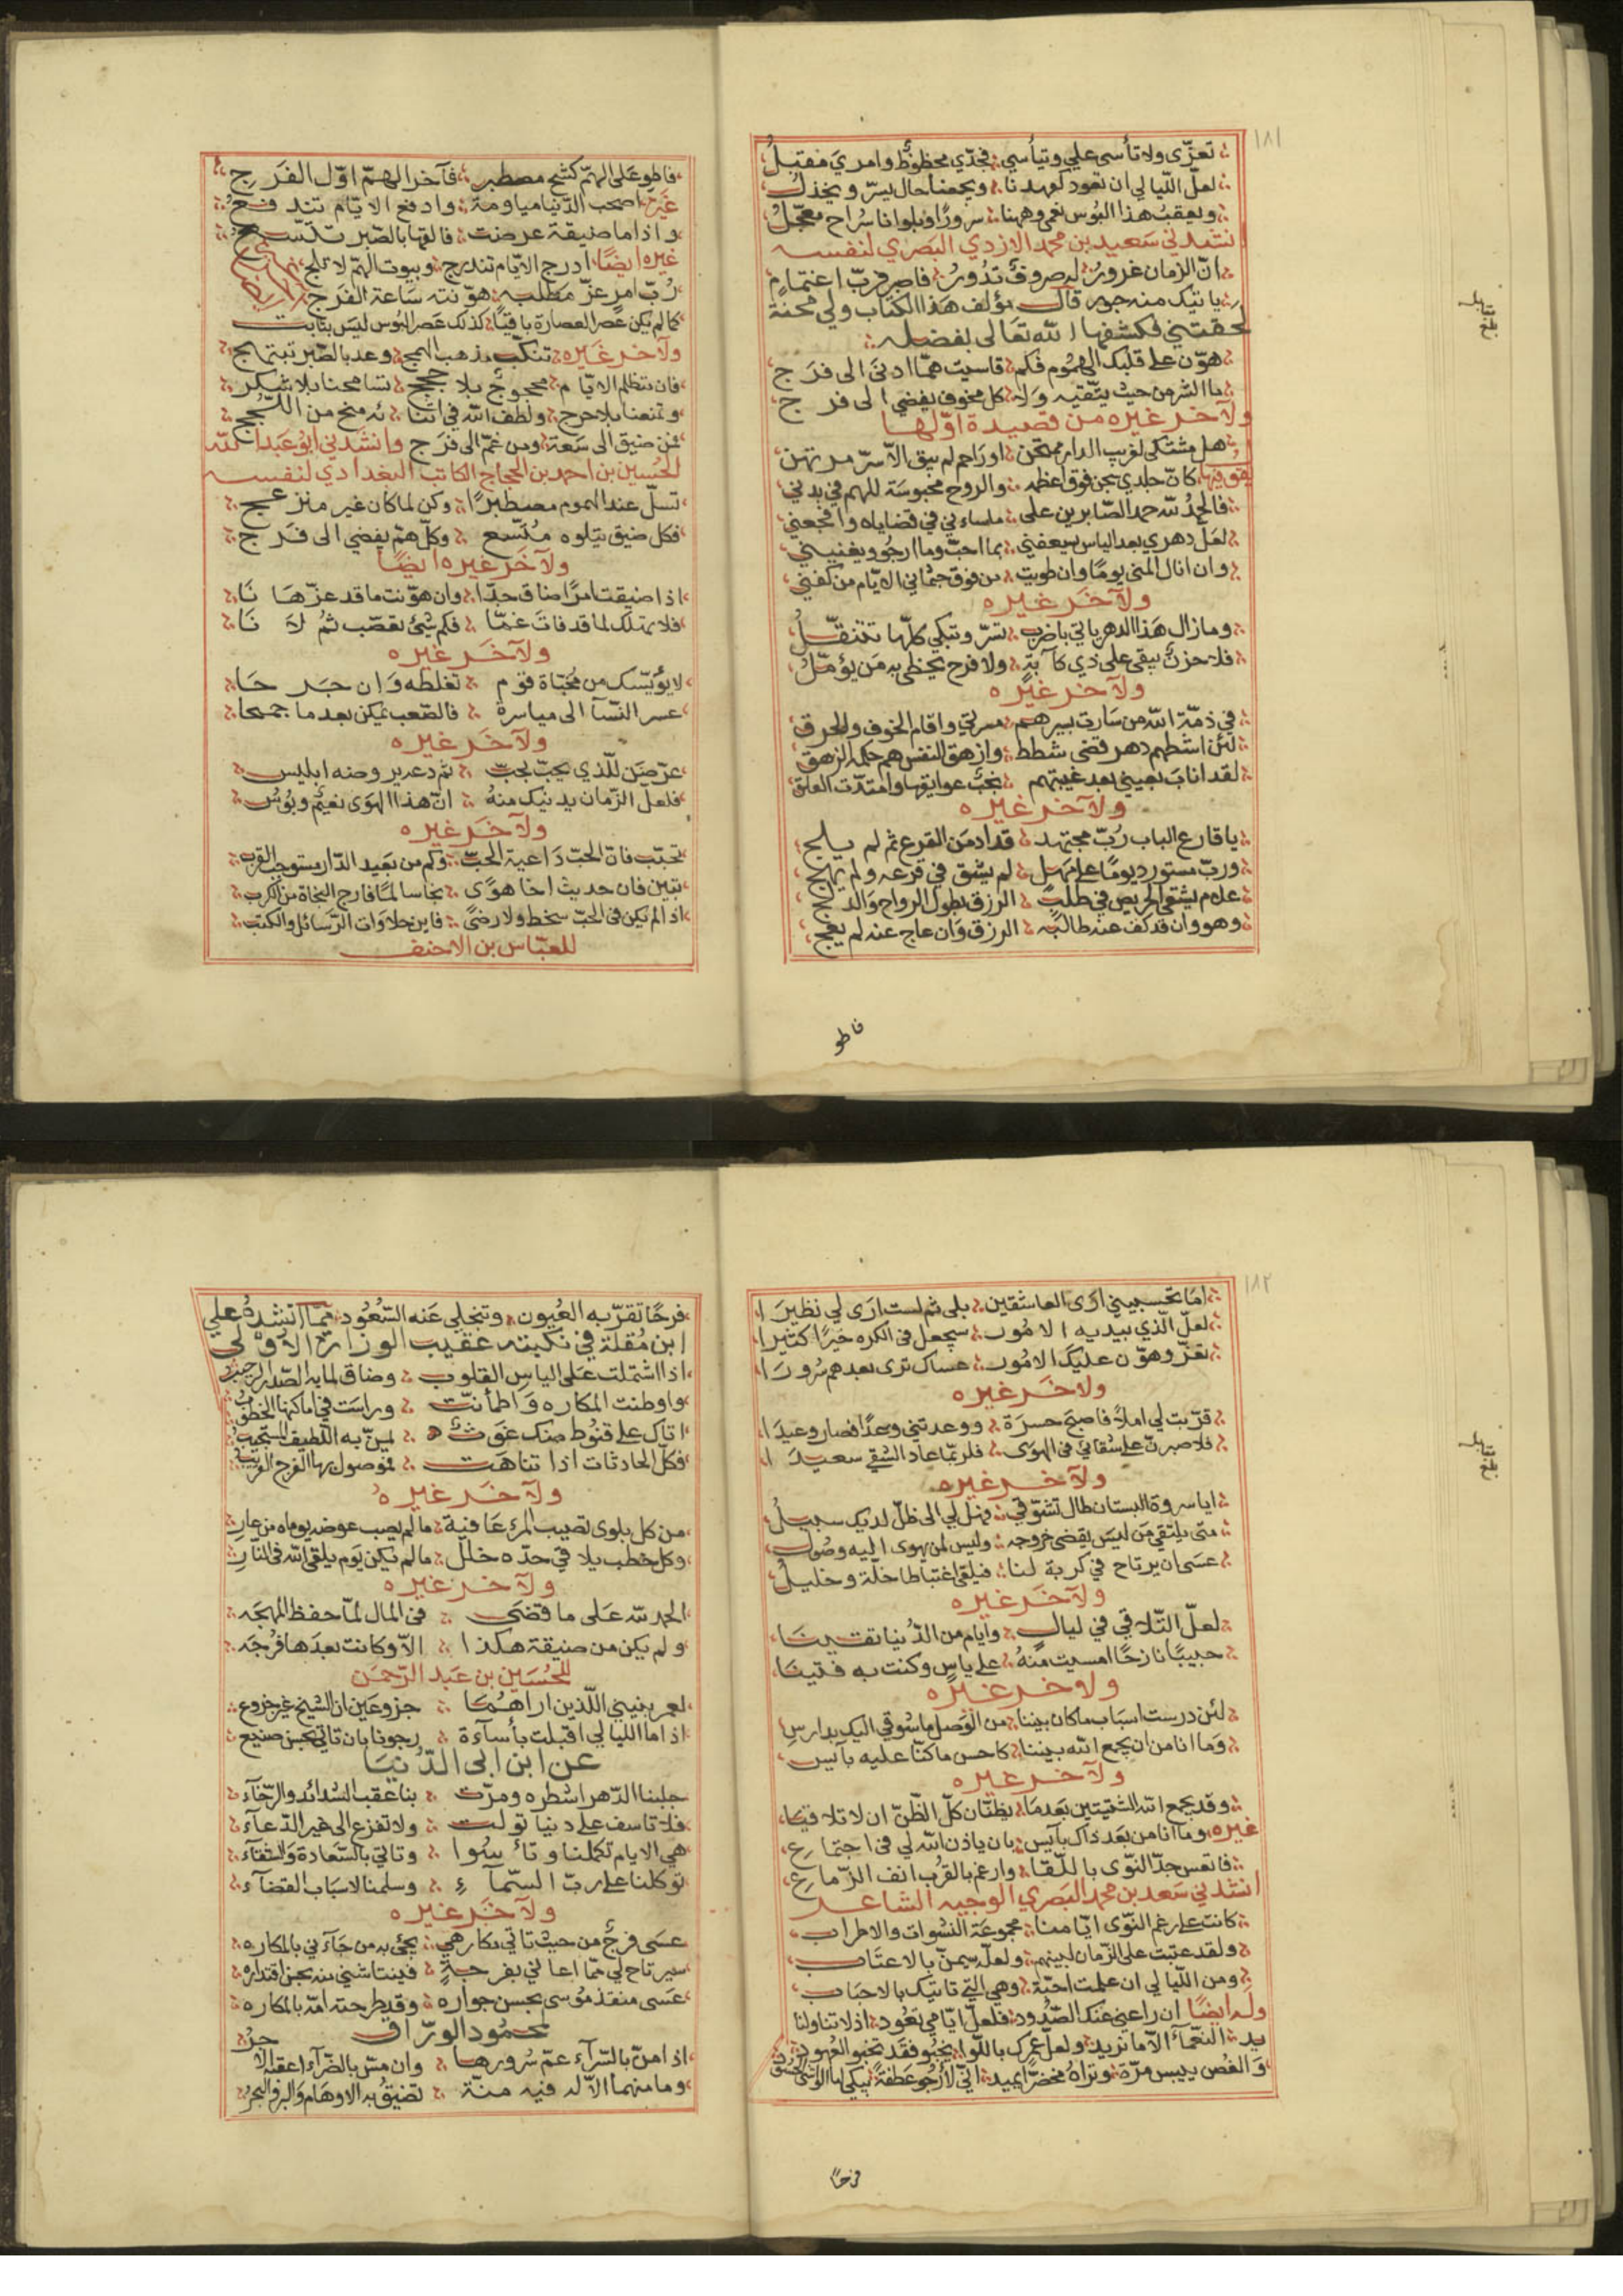 ١٨١
تعزّى ولا تأسى علي وتيأسي فجدّي محظوظ وامري مقبل
لعلّ اللّيالي ان تعود كعهدنا ويجمعنا حال يسرّ ويخذل
ويعقب هذا البُوس نعمى وهمنا سرورًا وبلوانا سُراح معجّل
انشدني سَعيد بن محمد الازدي البَصري لنفسه
انّ الزمان غرورُ لصروفه تدُورُ فاصبر فربّ اغتمام
ياتيك منه سرور قال مؤلف هَذا الكتاب ولي محنة
لحقتني فكشفها الله تعَالى بفضله
هوّن على قلبك الهمُوم فكم قاسيت همّا ادنى الى فرَج
ما الشر من حيث يتّقيه وَلا كل مخوف يفضي الى فرج
ولآخر غيره من قصيدة اوّلها
هل مشتكى لغريب الدار ممتحن او راحم لم يبق الا سرّ مرتهن
كانّ جلدي سجن فوق اعظمه والروح محبوسَة للهم في بدني
فالحمدُ لله حمد الصّابرين على ما ساءني في قضاياه وافجعني
لعَلّ دهري بعد الياس يسعفني بما احبّ وما ارجُو ويغنيني
وان انال المنى يومًا وان طويت من فوق جثماني الايّام من كفني
ولآخَر غيره
وما زال هَذا الدهر ياتي باضرب تسرّ وتبكي كلّها تتنقّلُ
فلا حزنٌ يبقى على ذي كآبةٍ ولا فرح يحظى به مَن يؤمّلُ
ولآخر غيره
في ذمّة الله من سَارت بسيرهم مسرتي واقام الخوف والحرق
لئن اشطهم دهر قضى شطط وازهق النفس هم حكمه الزهق
لقد اناب بعيني بعد غيبتهم
ولآخر غيره
يا قارع الباب رُبّ مجتهد قد ادمَن القرع ثم لم يلج
وربّ مستورد يومًا على مَهل لم يشق في قرعه ولم يهج
علام يشقى الحريص في طلب الرزق بطول الرواح وَالدلج
وهو وان قد كف عنه طالبَه الرزق وَان عاج عنه لم يعج
فاطو
فاطو عَلى الهمّ كشح مصطبر فآخر الهمّ اوّل الفرَج
غيرهُ اصحب الدّنيا مياومة وادفع الايّام تندفعُ
واذا ما ضيقة عرضت فالقها بالصّبر تتّسعُ
غيره ايضًا ادرج الايّام تندرج وبيوت الهمّ لا تلج
رُبّ امر عزّ مطلبه هوّنته سَاعة الفرَج
كما لم يكن عَصر الغضارة باقيًا كذلك عَصر البُوس ليسَ بثابت
ولآخر غيره تنكّب مذهب الهمج وعد بالصّبر تبتهج
فان مظلم الايّام محجوجٌ بلا حجج تسامحنا بلا شكر
وتمنعنا بلا حرج ولطف الله في اتيانه منح من اللّجج
فمن ضيق الى سَعة ومن غمّ الى فرَج وانشدني ابُو عَبد الله
الحُسين بن احمد بن الحجاج الكاتب البغدادي لنفسه
تسلّ عند الهموم مصطبرًا وكن لما كان غير منزعج
فكل ضيق يتلوه متّسع وكلّ همّ يفضي الى فرَج
ولآخَر غيره ايضًا
اذا ضيقت امرًا ضاق جدّا وان هوّنت ما قد عزّ هَانَا
فلا تهلك لما قد فاتَ غمّا فكم شئ تعصّب ثمُ لَانَا
ولآخَر غيره
لا يؤيسنّك من مخبّاة قوم تغلظه وَان جرحَا
عسر النّسآ الى مياسرة فالصّعب يمكن بعدما جمحا
ولآخر غيره
عرّضن للّذي يحبّ بحبّ ثم دعه يروضه ابليس
فلعلّ الزّمان يدنيك منهُ انّ هذا الهوَى نعيمٌ وبُوسُ
ولآخَر غيره
تحبّب فانّ الحبّ دَاعية الحبّ وكم من بَعيد الدّار مستوجب القرب
تبين فان حدّيث اخا هوًى نجا سالما فارج النجاة من الكرب
اذا لم يكن في الحبّ سخط ولا رضىً فاين حلاوات الرّسائل والكتب
للعبّاس بن الاحنف
١٨٢
امَا تحسبيني ارَى العاشقين بلى ثم لست ارَى لي نظيرَا
لعلّ الّذي بيديه الامُور سيجعل في الكره خيرًا كثيرا
تعزّ وهوّن عليك الامُور عساك ترى بعد همّ سُرورَا
ولآخَر غيره
قرّبت لي املا فاصبحَ حسرَة ووعدتني وعدًا فصار وعيدَا
فلاصبرنّ على شقائي في الهوَى فلربّما عاد الشقي سعيدَا
ولآخر غيره
ايا سروة البستان طال تشوّقي فهل لي الى ظلّ لديك سبيلُ
متى يلتقي مَن ليسَ يقضى خروجه وليس لمن يهوى اليه وصُول
عسَى ان يرتاح في كربة لنا فيلقى اغتباطا خلّة وخليلُ
ولآخَر غيره
لعلّ التّلاقي في ليالٍ وايام من الدُنيا بقينَا
حبيبًا نازحًا امسيت منهُ على ياس وكنت به فتينَا
ولآخر غيره
لئن درست اسبَاب ما كان بيننا من الوَصل ما شوقي اليك بدارس
وَما انا من ان يجمع الله بيننا كاحسن ما كنّا عليه بآيس
ولآخر غيره
وقد يجمع الله الشتيتين بَعدمَا يظنّان كلّ الظّنّ ان لا تلاقيَا
غيره وما انا من بَعد ذاك بآيس بان ياذن الله لي في اجتماع
فاتعس جدّ النوّى باللّقا وارغم بالقرُب انف الزّماع
انشدني سَعد بن محمد البَصري الوجيه الشاعر
كانت على رغم النّوى ايّامنا مجموعَة النشوات والاطراب
ولقد عتبت على الزّمان لبينهم ولعلّه سيمنّ بالاعتَاب
ومن اللّيالي ان علمت احبّة وهي الّتي تاتيك بالاحبَاب
وله ايضًا ان راعني عنك الصّدُود فلعلّ ايّامي تعُود اذ لا تناولنا
يد النّعمآء الا ما نزيد
وَالغُصن ييبس مرّة وتراهُ مخضرًّا يميد انّي لأرجُو عَطفة
فرحًا
فرحًا تقرّ به العُيون وتنجلي عَنه السّعُود فممّا انشدهُ علي
ابن مُقلة في نكبته عقيب الوزارة الاولى
اذا اشتملت عَلى الياس القلوب وضاق لما به الصّدر الرحيب
واوطنت المكاره وَاطمأنّت وراست في اماكنها الخطوُب
اتاك على قنُوط منك غَوثٌ يمنّ به اللّطيف المستجيبُ
فكلّ الحادثات اذا تناهت فموصول بها الفرج القريب
ولآخَر غيره
من كل بلوى تصيب المرء عَافية ما لم يصب عوضه يوما من عارِ
وكل خطب يلاقي حدّه خلل ما لم يكن يَوم يلقى الله في النّارِ
ولآخر غيره
الحمد لله عَلى ما قضَى في المال لمّا حفظ المهجَه
ولم يكن من ضيقة هكذا الاّ وكانت بعدَها فرُجَه
للحُسَين بن عَبد الرّحمَن
لعمر بنيني اللّذين اراهُمَا جزوعَين ان الشيخ غير جزوع
اذا ما الليالي اقبلت بأسآءة رجونا بان تاتي بحسن صنيع
عن ابن ابى الدّنيَا
حلبنا الدّهر اشطره ومرّت بنا عقب الشدائد والرّخآء
فلا تاسف على دنيا تولت ولا تفزع الى غير الدّعآء
هي الايام تكلمنا وتاسُوا وتاتي بالسّعادة وَالشقآء
توكلنا على ربّ السّمآءِ وسلمنا لاسبَاب القضآء
ولآخَر غيره
عسَى فرجٌ من حيث تاتي مكارهي يجئ به من جَآءني بالمكاره
سيرتاح لي ممّا اعاني بفرجةٍ فينتاشني منه بحسن اقتداره
عَسَى منقذ مُوسى بحسن جواره وقد طرحته امّه بالمكاره
لمحمُود الورّاق
اذا منّ بالسّرآء عمّ سُرورها وان مسّ بالضّرآء اعقبها الاجرُ
وما منهما الاّ له فيه منّة تضيقُ به الاوهَام وَالبرّ والبحرُ